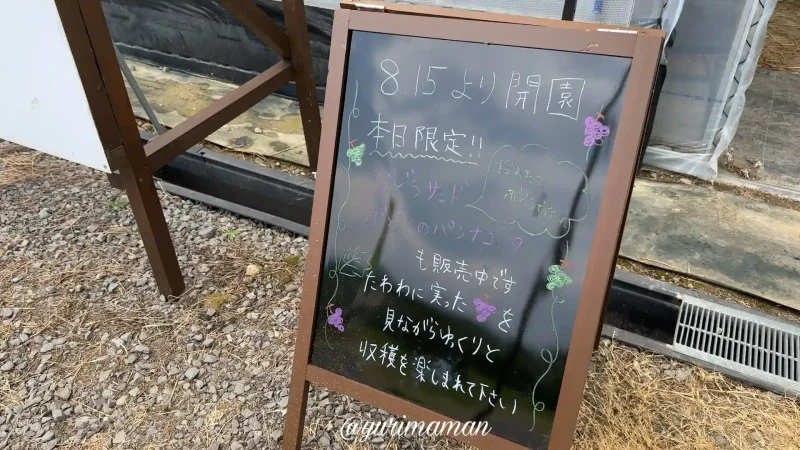 8.15より開園
本日限定!!
サンド
のパンナコッタ
も販売中です
たわわに実った を
見ながらゆくりと
収穫を楽しまれて下さい
@yurimaman